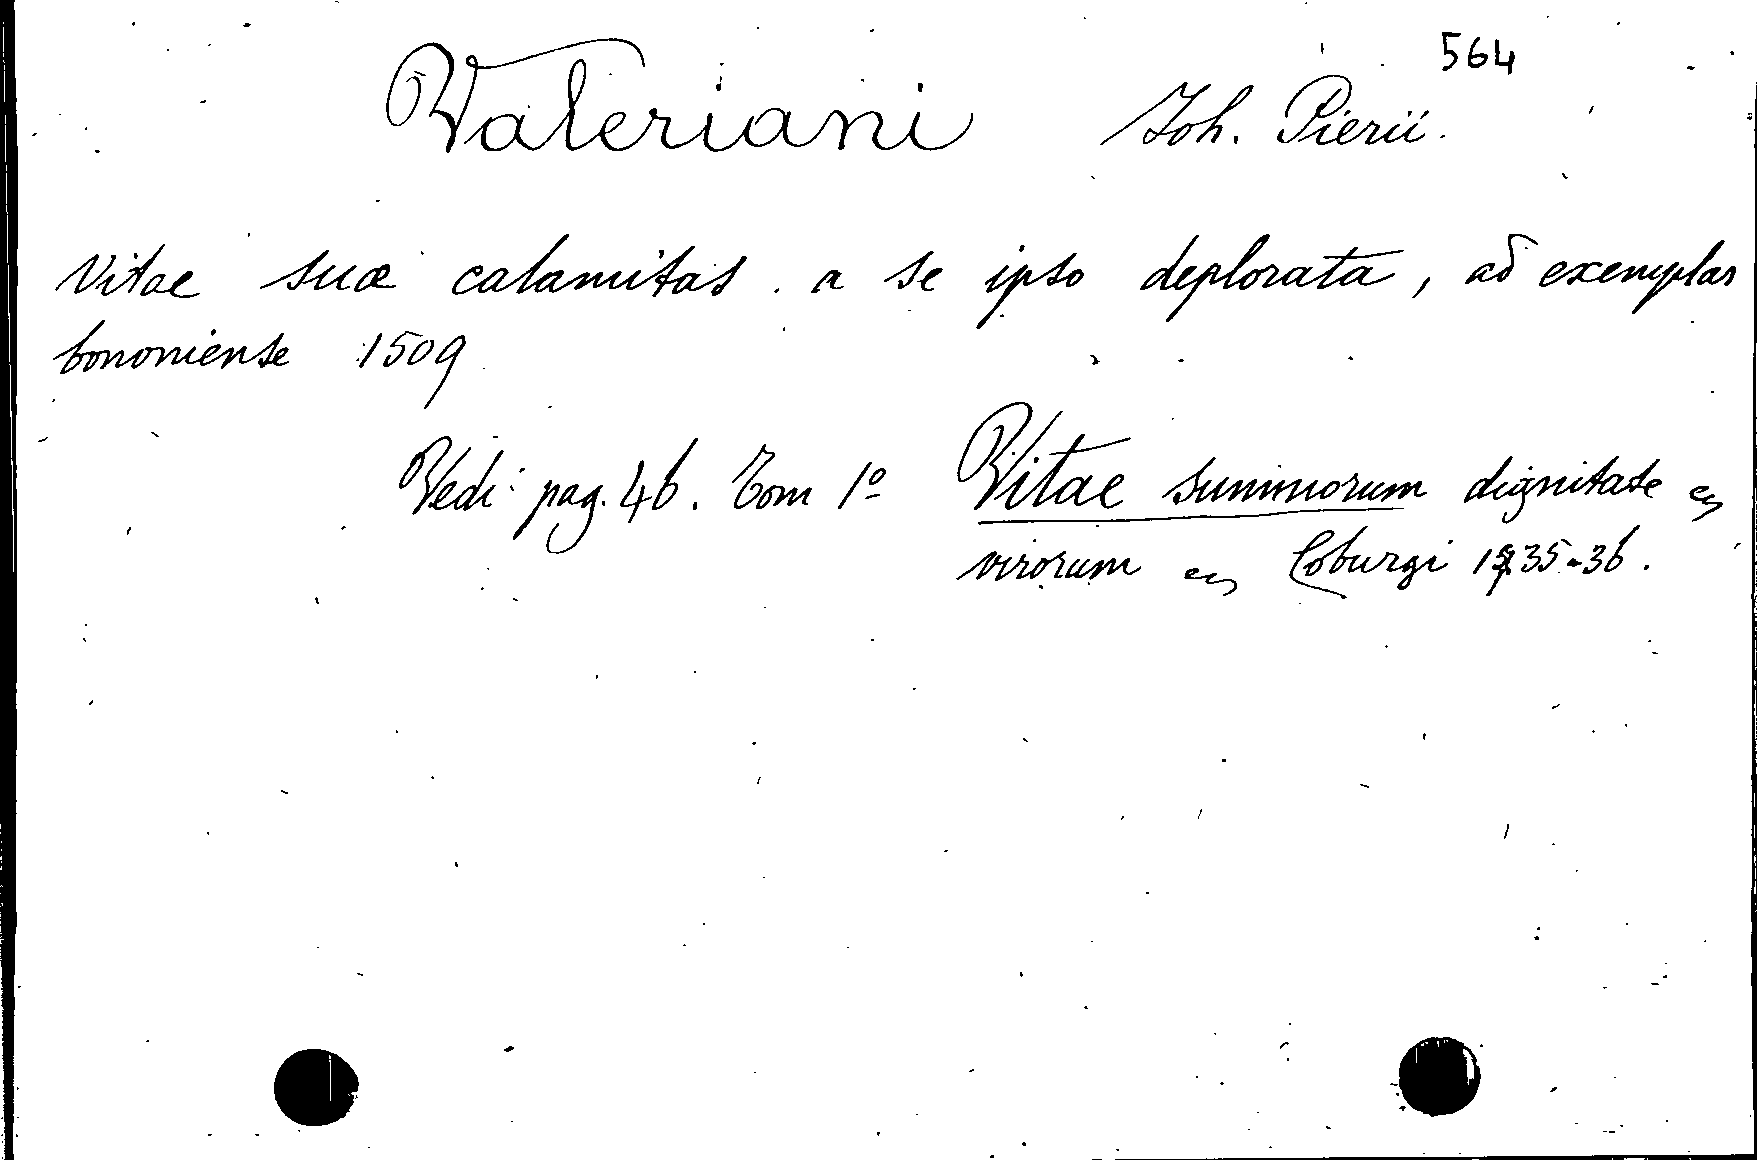 564
Valeriani Joh. Pierii.
Vitae suae calamitas. a se ipso deplorata, ad exemplar
bononiense 1509
Vedi pag. 46. Tom 1º Vitae summorum dignitate
virorum Coburgi 1735-36.